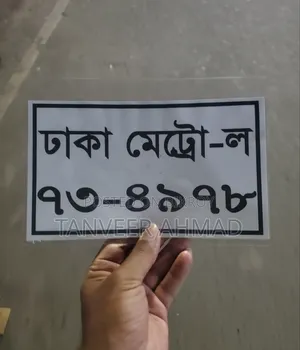 ঢাকা মেট্রো-ল
৭৩-৪৯৭৮
TANVEER AHMAD